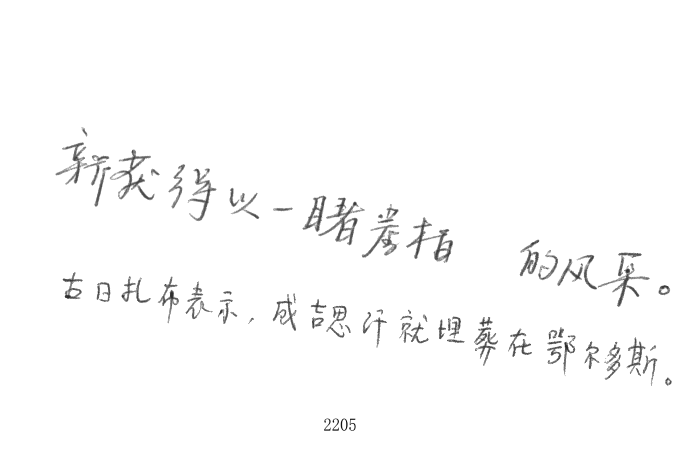 新获得以一睹卷柏 的风采。
古日扎布表示,成吉思汗就埋葬在鄂尔多斯。
2205